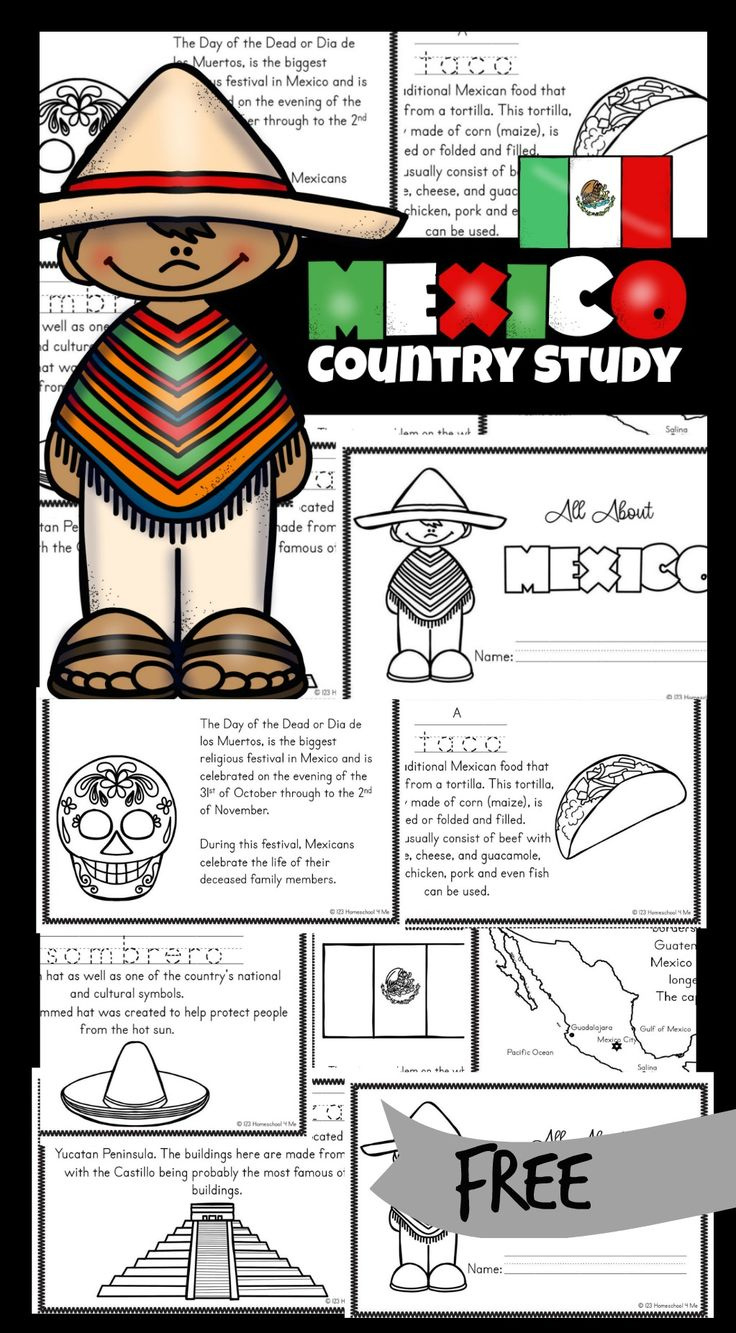 The Day of the Dead or Dia de
los Muertos, is the biggest
festival in Mexico and is
on the evening of the
through to the 2nd
Mexicans
A
taco
Mexican food that
from a tortilla. This tortilla,
made of corn (maize), is
or folded and filled.
usually consist of
cheese, and
chicken, pork and
can be used.
MEXICO
COUNTRY STUDY
well as one
from
Salina
All About
MEXICO
Name:
made from
famous
© 123
© 123
The Day of the Dead or Dia de
los Muertos, is the biggest
religious festival in Mexico and is
celebrated on the evening of the
31st of October through to the 2nd
of November.
During this festival, Mexicans
celebrate the life of their
deceased family members.
© 123 Homeschool 4 Me
A
taco
Mexican food that
from a tortilla. This tortilla,
made of corn (maize), is
or folded and filled.
usually consist of beef with
cheese, and guacamole,
chicken, pork and even fish
can be used.
© 123 Homeschool 4 Me
sombrero
hat as well as one of the country's national
and cultural symbols.
hat was created to help protect people
from the hot sun.
© 123 Homeschool 4 Me
borders
Mexico
The
Guadalajara
Gulf of Mexico
Mexico City
Pacific Ocean
Salina
Yucatan Peninsula. The buildings here are made from
with the Castillo being probably the most famous of
buildings.
© 123 Homeschool 4 Me
All
FREE
Name:
© 123 Homeschool 4 Me